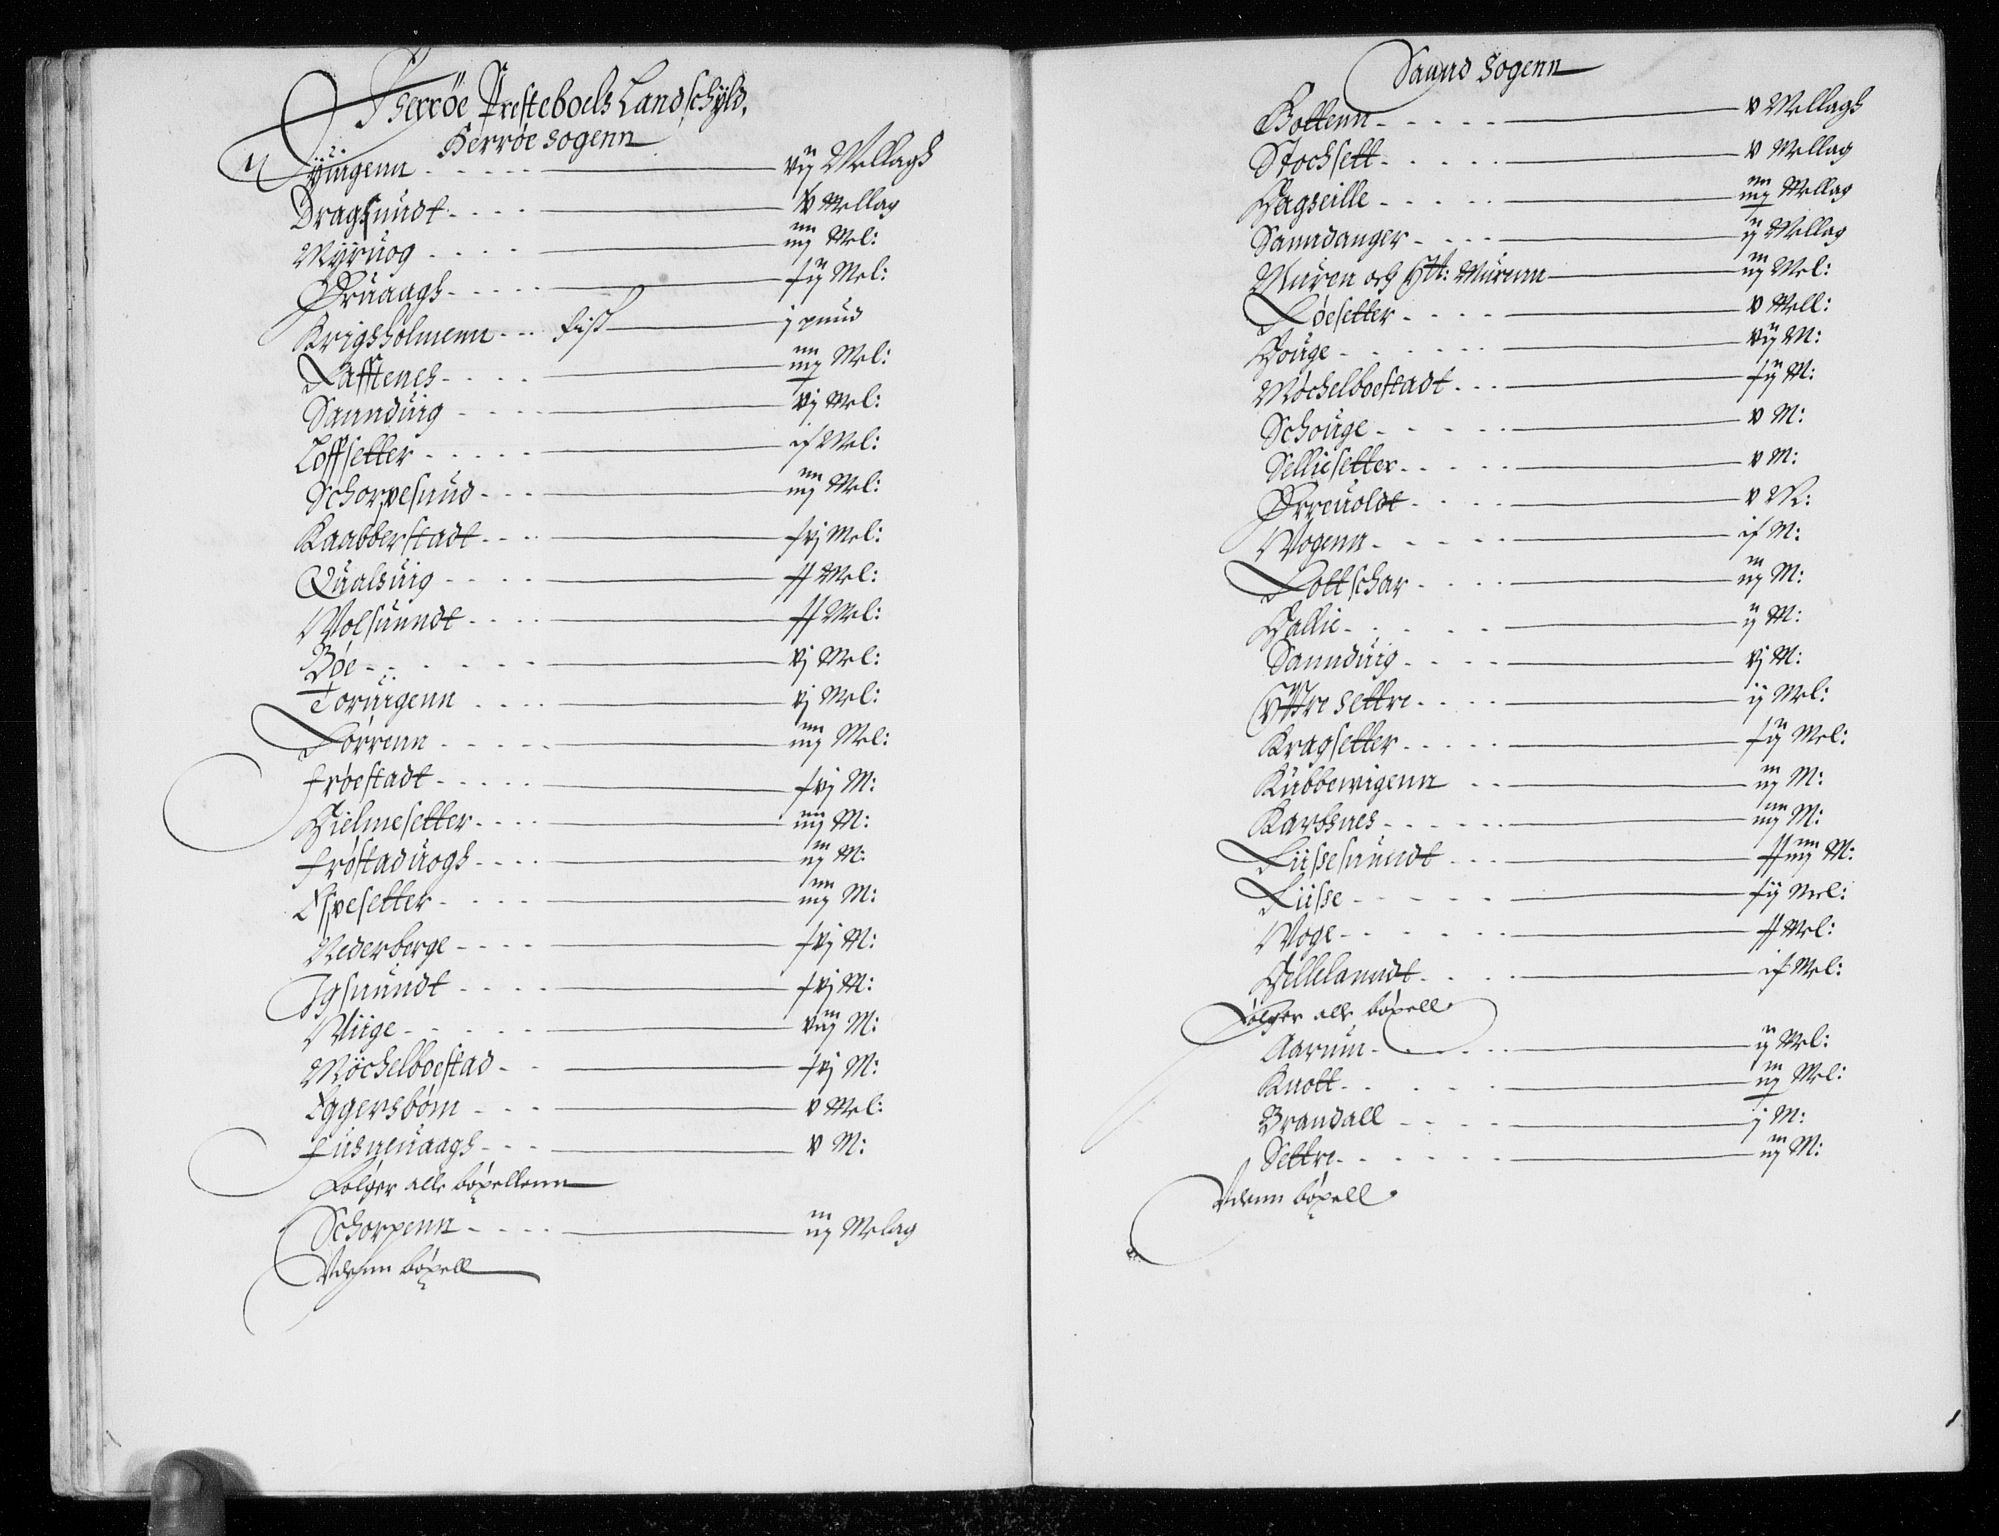 Herrøe Presteboels Landschyld,
Herrøe sogenn
Myüigenn - - - - - vij Mellagh
Dragsundt - - - - v Mellag
Myruog - - - - iiij Mel:
Øruaagh - - - - - fij Mel:
Krigsholmenn - - - fisk j pund
Lafftenes - - - - iiij Mel:
Sannduig - - - - vj Mel:
Loffsetter - - - - - if Mel:
Schorpesund - - - iiij Mel:
Kaabberstadt - - - - fvj Mel:
Qualsuig - - - - ff Mel:
Wolsunndt - - - - ff Mel:
Bøe - - - - - - vj Mel:
Toruigenn - - - - vj Mel:
Lørrenn - - - - - iiij Mel:
Frøestadt - - - - - fvj M:
Hielmesetter - - - - iiij M:
Frøstaduogh - - - - iij M:
Espesetter - - - - iiij M:
Nederberge - - - - fvj M:
Igsunndt - - - - fvj M:
Wiige - - - - - - viij M:
Møchelboestad - - - fvj M:
Eggersbøm - - - v Mel:
Fusneuaagh - - - v M:
Følger alle bøxellenn
Schorpenn - - - - iij Melag
Vdenn bøxell
Saund sogenn
Bottenn - - - - - v Mellagh
Stochsett - - - - - v Mellag
Hagseille - - - - - iiij Mellag
Sanndanger - - - - ij Mellag
Muren och Ytt: Murenn iij Mel:
Løesetter - - - - v Mell:
Houge - - - - - - vij M:
Møchelboestadt - - - fij M:
Schouge - - - - - v M:
Selliesetter - - - - v M:
Ørreuoldt - - - - v M:
Wogenn - - - - - if M:
Lottschar - - - - iij M:
Hallie - - - - - ij M:
Sannduig - - - - vj M:
Yttre settre - - - - ij Mel:
Kragsetter - - - - - fij Mel:
Kubbewigenn - - iij M:
Karhsnes - - - - - - iiij M:
Liissesunndt - - - ffiiij M:
Liisse - - - - - fij Mel:
Woge - - - - - - ff Mel:
Hellelanndt - - - - if Mel:
Følger alle bøxell
Aarum - - - - - ij Mel:
Knott - - - - - - iij Mel:
Brandall - - - - j M:
Settre - - - - - - iij M:
Vdenn bøxell